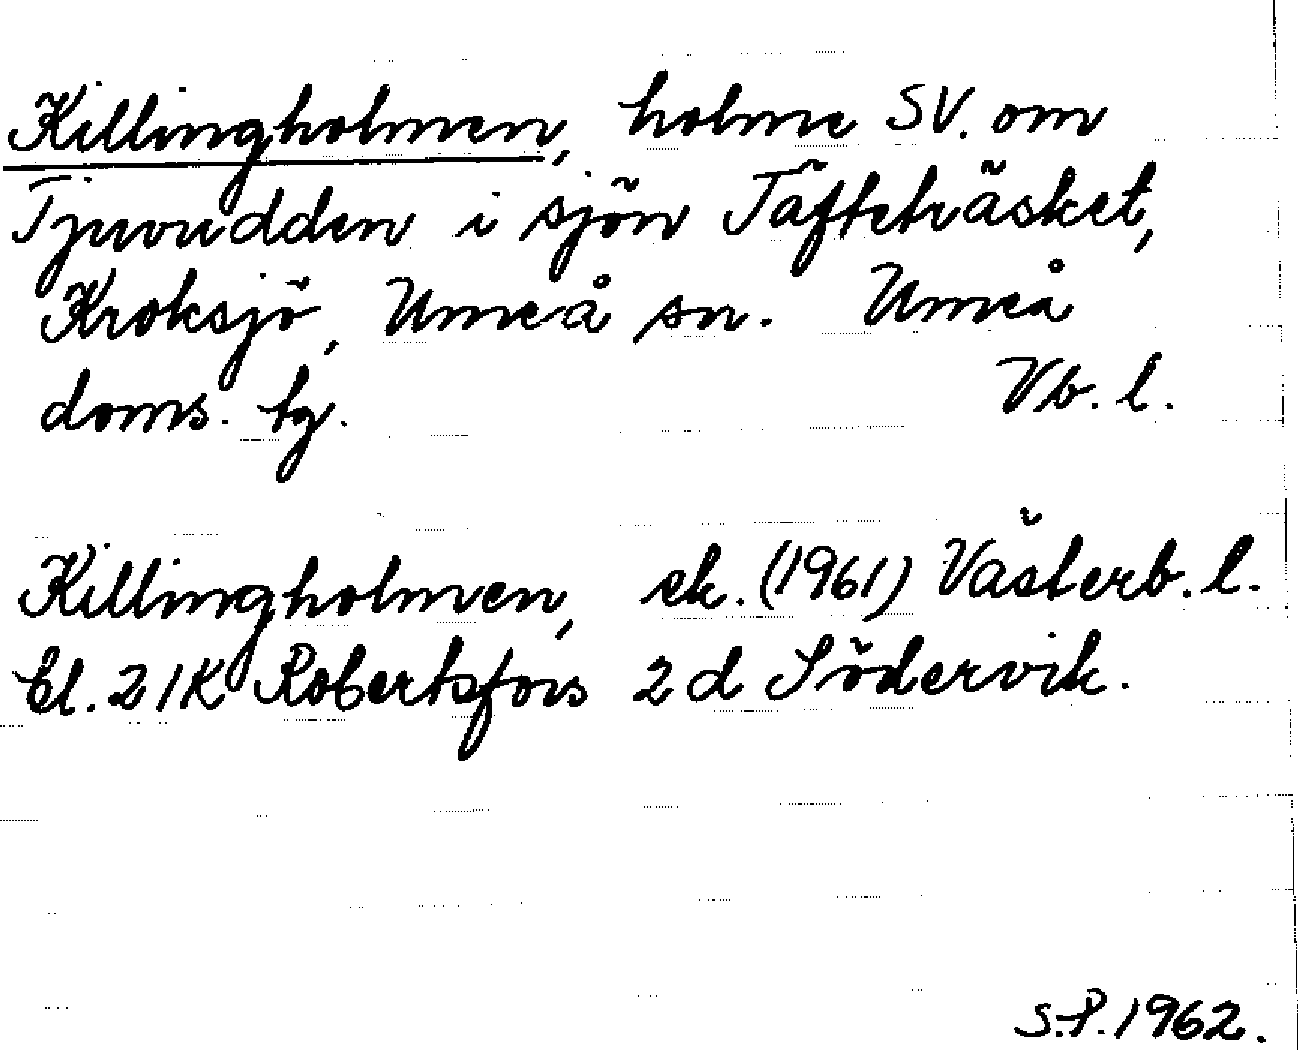 Killingholmen, holme SV. om
Tjuvudden i sjön Täfteträsket,
Kroksjö, Umeå sn. Umeå
doms. tg. Vb. l.
Killingholmen, ek. (1961) Västerb. l.
bl. 21K Robertsfors 2d Södervik.
S.P. 1962.